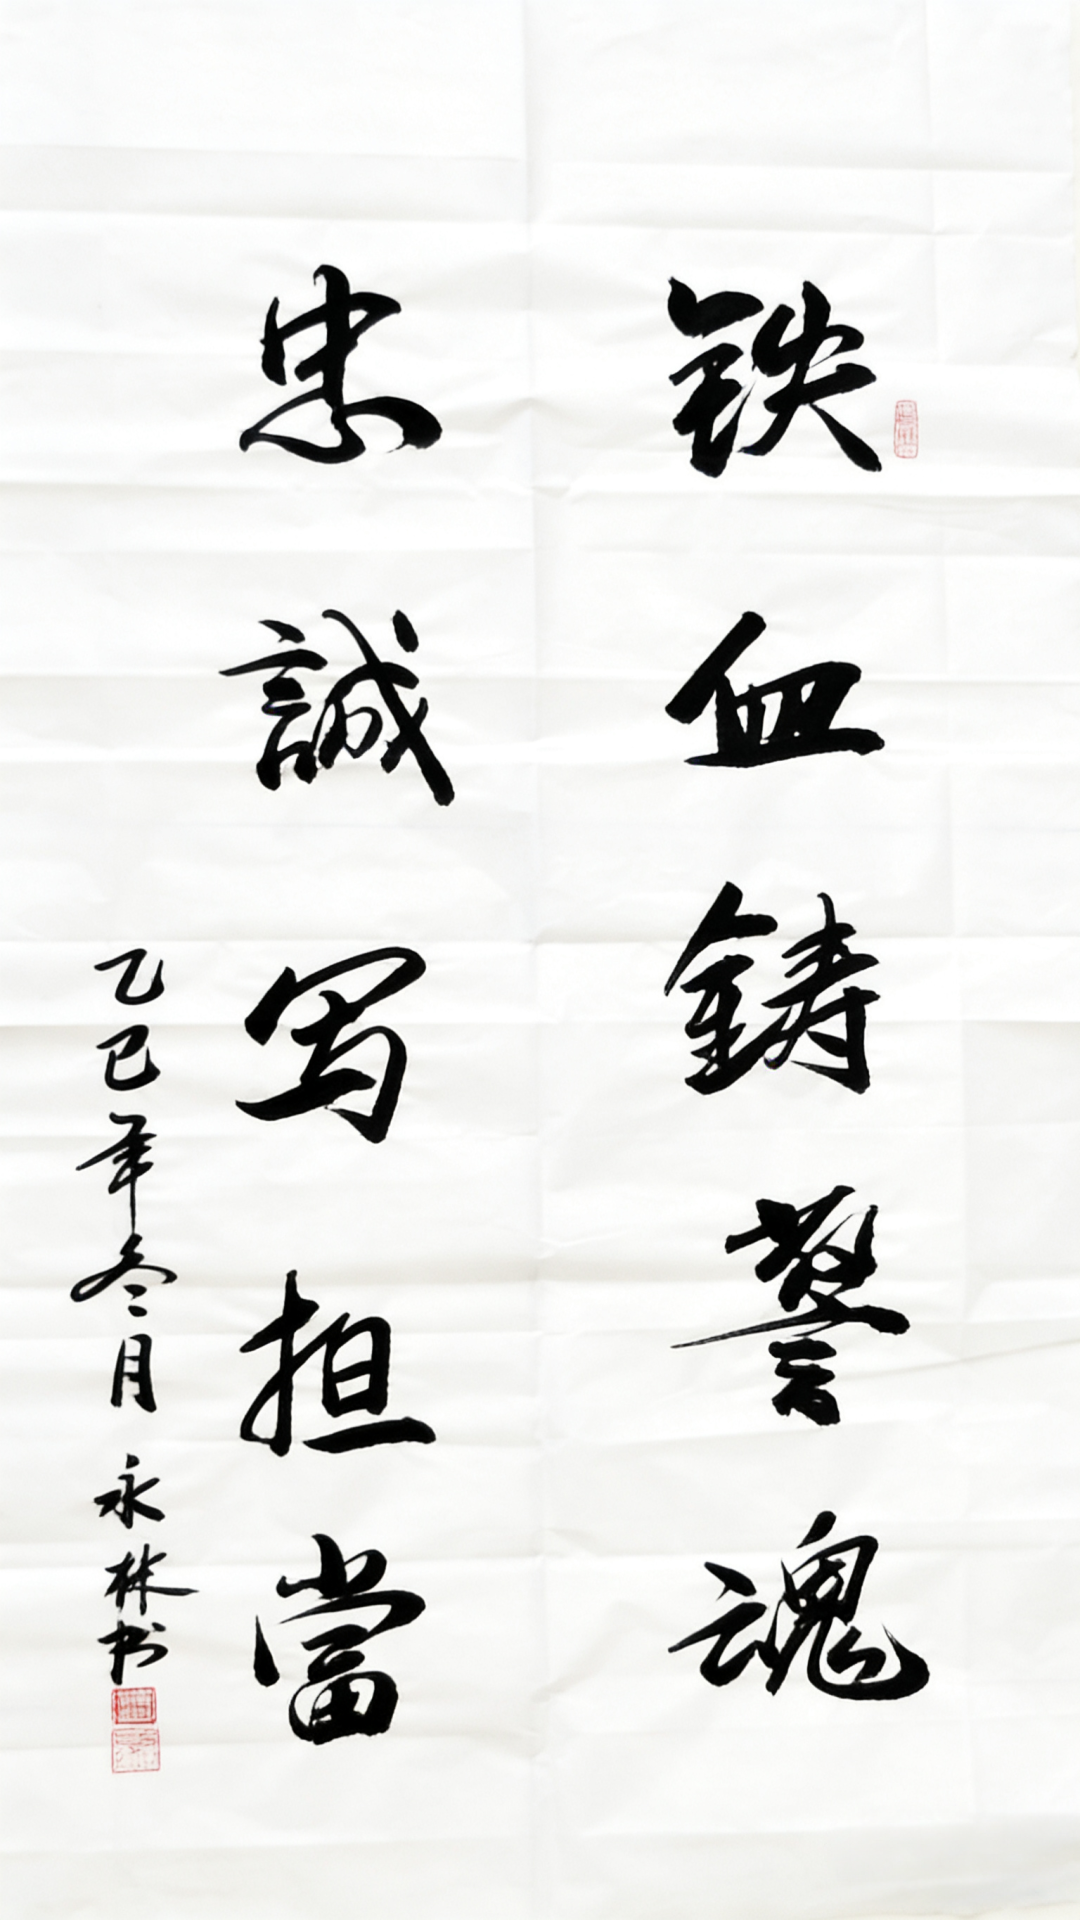 铁血鋳警魂
忠誠写担當
乙巳年冬月永林书